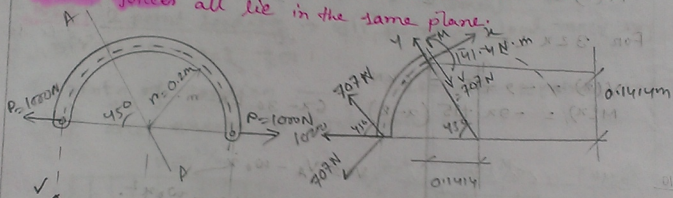 all lie in the same plane.
A
P=1000N
45°
r=0.2m
P=1000N
A
Y
M
x
141.4 N.m
707N
V
707N
45°
707N
0.1414m
0.1414